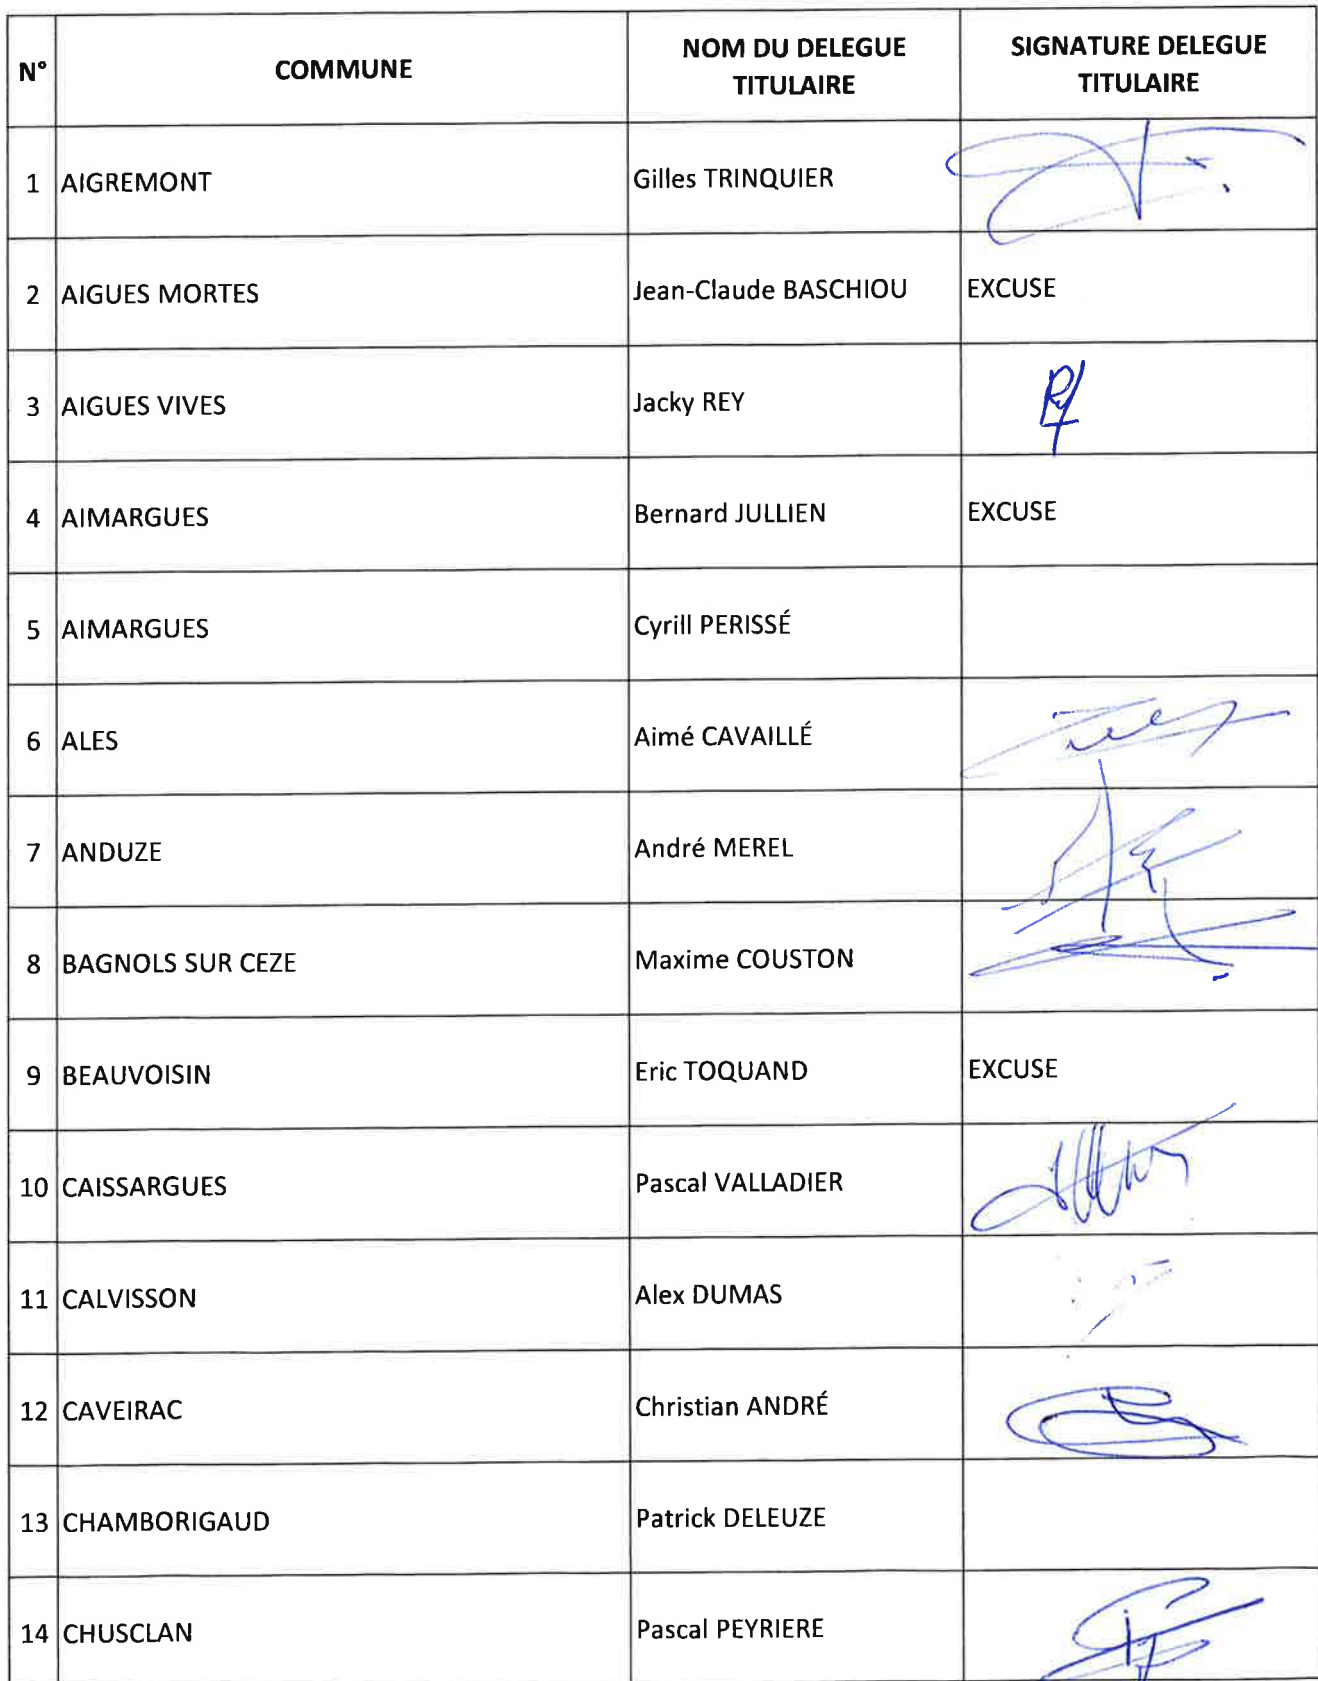 N° COMMUNE NOM DU DELEGUE TITULAIRE SIGNATURE DELEGUE TITULAIRE
1 AIGREMONT Gilles TRINQUIER
2 AIGUES MORTES Jean-Claude BASCHIOU EXCUSE
3 AIGUES VIVES Jacky REY
4 AIMARGUES Bernard JULLIEN EXCUSE
5 AIMARGUES Cyrill PERISSÉ
6 ALES Aimé CAVAILLÉ
7 ANDUZE André MEREL
8 BAGNOLS SUR CEZE Maxime COUSTON
9 BEAUVOISIN Eric TOQUAND EXCUSE
10 CAISSARGUES Pascal VALLADIER
11 CALVISSON Alex DUMAS
12 CAVEIRAC Christian ANDRÉ
13 CHAMBORIGAUD Patrick DELEUZE
14 CHUSCLAN Pascal PEYRIERE